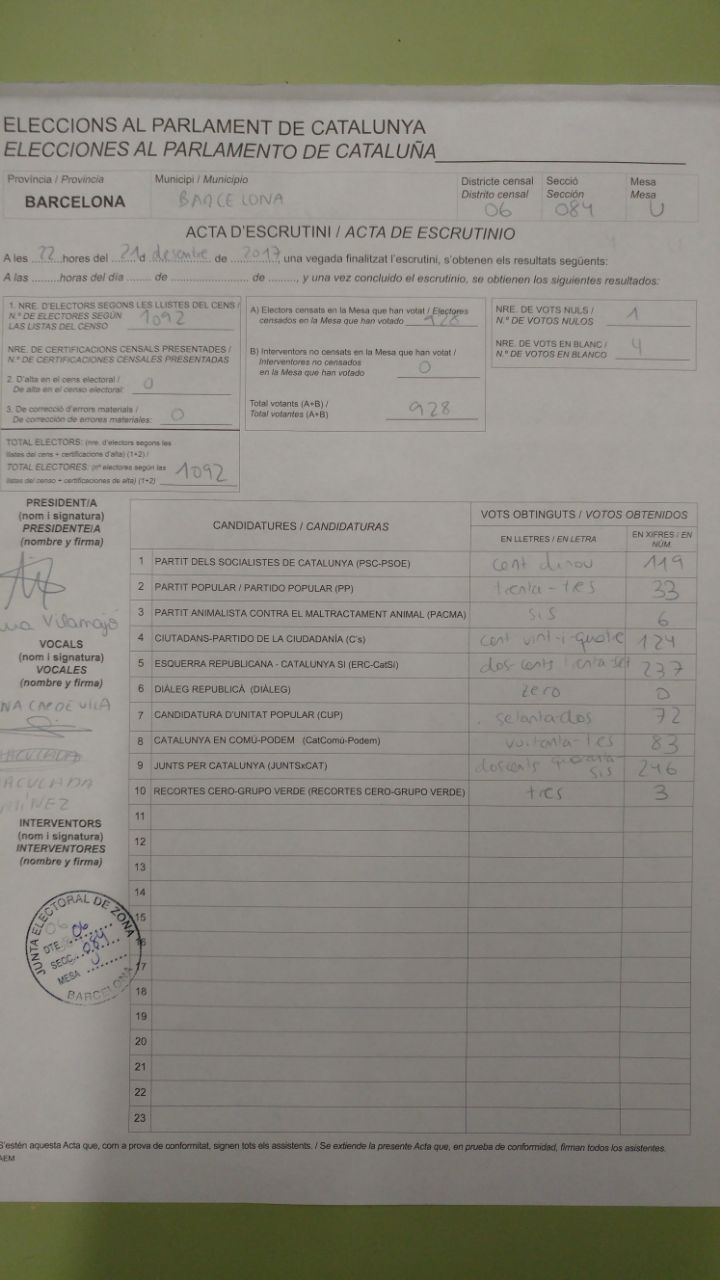 ELECCIONS AL PARLAMENT DE CATALUNYA
ELECCIONES AL PARLAMENTO DE CATALUÑA
Província / Provincia
BARCELONA
Municipi / Municipio
BARCELONA
Districte censal
Distrito censal
06
Secció
Sección
084
Mesa
Mesa
U
ACTA D'ESCRUTINI / ACTA DE ESCRUTINIO
A les 22 hores del 21 d desembre de 2017, una vegada finalitzat l'escrutini, s'obtenen els resultats següents:
A las ........horas del día ........ de ........ de ........, y una vez concluido el escrutinio, se obtienen los siguientes resultados:
1. NRE. D'ELECTORS SEGONS LES LLISTES DEL CENS /
N.º DE ELECTORES SEGÚN
LAS LISTAS DEL CENSO
1092
NRE. DE CERTIFICACIONS CENSALS PRESENTADES /
N.º DE CERTIFICACIONES CENSALES PRESENTADAS
2. D'alta en el cens electoral /
De alta en el censo electoral:
0
3. De correcció d'errors materials /
De corrección de errores materiales:
0
TOTAL ELECTORS: (nre. d'electors segons les
llistes del cens + certificacions d'alta) (1+2) /
TOTAL ELECTORES: (nº electores según las
listas del censo + certificaciones de alta) (1+2)
1092
A) Electors censats en la Mesa que han votat / Electores
censados en la Mesa que han votado
928
B) Interventors no censats en la Mesa que han votat /
Interventores no censados
en la Mesa que han votado
0
Total votants (A+B) /
Total votantes (A+B)
928
NRE. DE VOTS NULS /
N.º DE VOTOS NULOS
1
NRE. DE VOTS EN BLANC /
N.º DE VOTOS EN BLANCO
4
PRESIDENT/A
(nom i signatura)
PRESIDENTE/A
(nombre y firma)
Vilamajó
VOCALS
(nom i signatura)
VOCALES
(nombre y firma)
NA CAPDEVILA
ACULADA
INTERVENTORS
(nom i signatura)
INTERVENTORES
(nombre y firma)
JUNTA ELECTORAL DE ZONA
DTE. 06
SECC. 084
MESA U
BARCELONA
CANDIDATURES / CANDIDATURAS
VOTS OBTINGUTS / VOTOS OBTENIDOS
EN LLETRES / EN LETRA
EN XIFRES / EN NÚM.
1 PARTIT DELS SOCIALISTES DE CATALUNYA (PSC-PSOE) cent dinou 119
2 PARTIT POPULAR / PARTIDO POPULAR (PP) trenta-tres 33
3 PARTIT ANIMALISTA CONTRA EL MALTRACTAMENT ANIMAL (PACMA) sis 6
4 CIUTADANS-PARTIDO DE LA CIUDADANÍA (C's) cent vint-i-quatre 124
5 ESQUERRA REPUBLICANA - CATALUNYA SI (ERC-CatSí) dos-cents trenta-set 237
6 DIÀLEG REPUBLICÀ (DIÀLEG) zero 0
7 CANDIDATURA D'UNITAT POPULAR (CUP) setanta-dos 72
8 CATALUNYA EN COMÚ-PODEM (CatComú-Podem) vuitanta-tres 83
9 JUNTS PER CATALUNYA (JUNTSxCAT) doscents quaranta sis 246
10 RECORTES CERO-GRUPO VERDE (RECORTES CERO-GRUPO VERDE) tres 3
11
12
13
14
15
16
17
18
19
20
21
22
23
S'estén aquesta Acta que, com a prova de conformitat, signen tots els assistents. / Se extiende la presente Acta que, en prueba de conformidad, firman todos los asistentes.
AEM